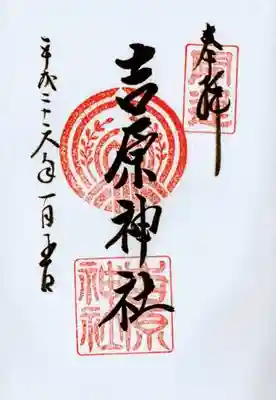 奉拝
吉原神社
吉原
神社
平成二十六年一月五日